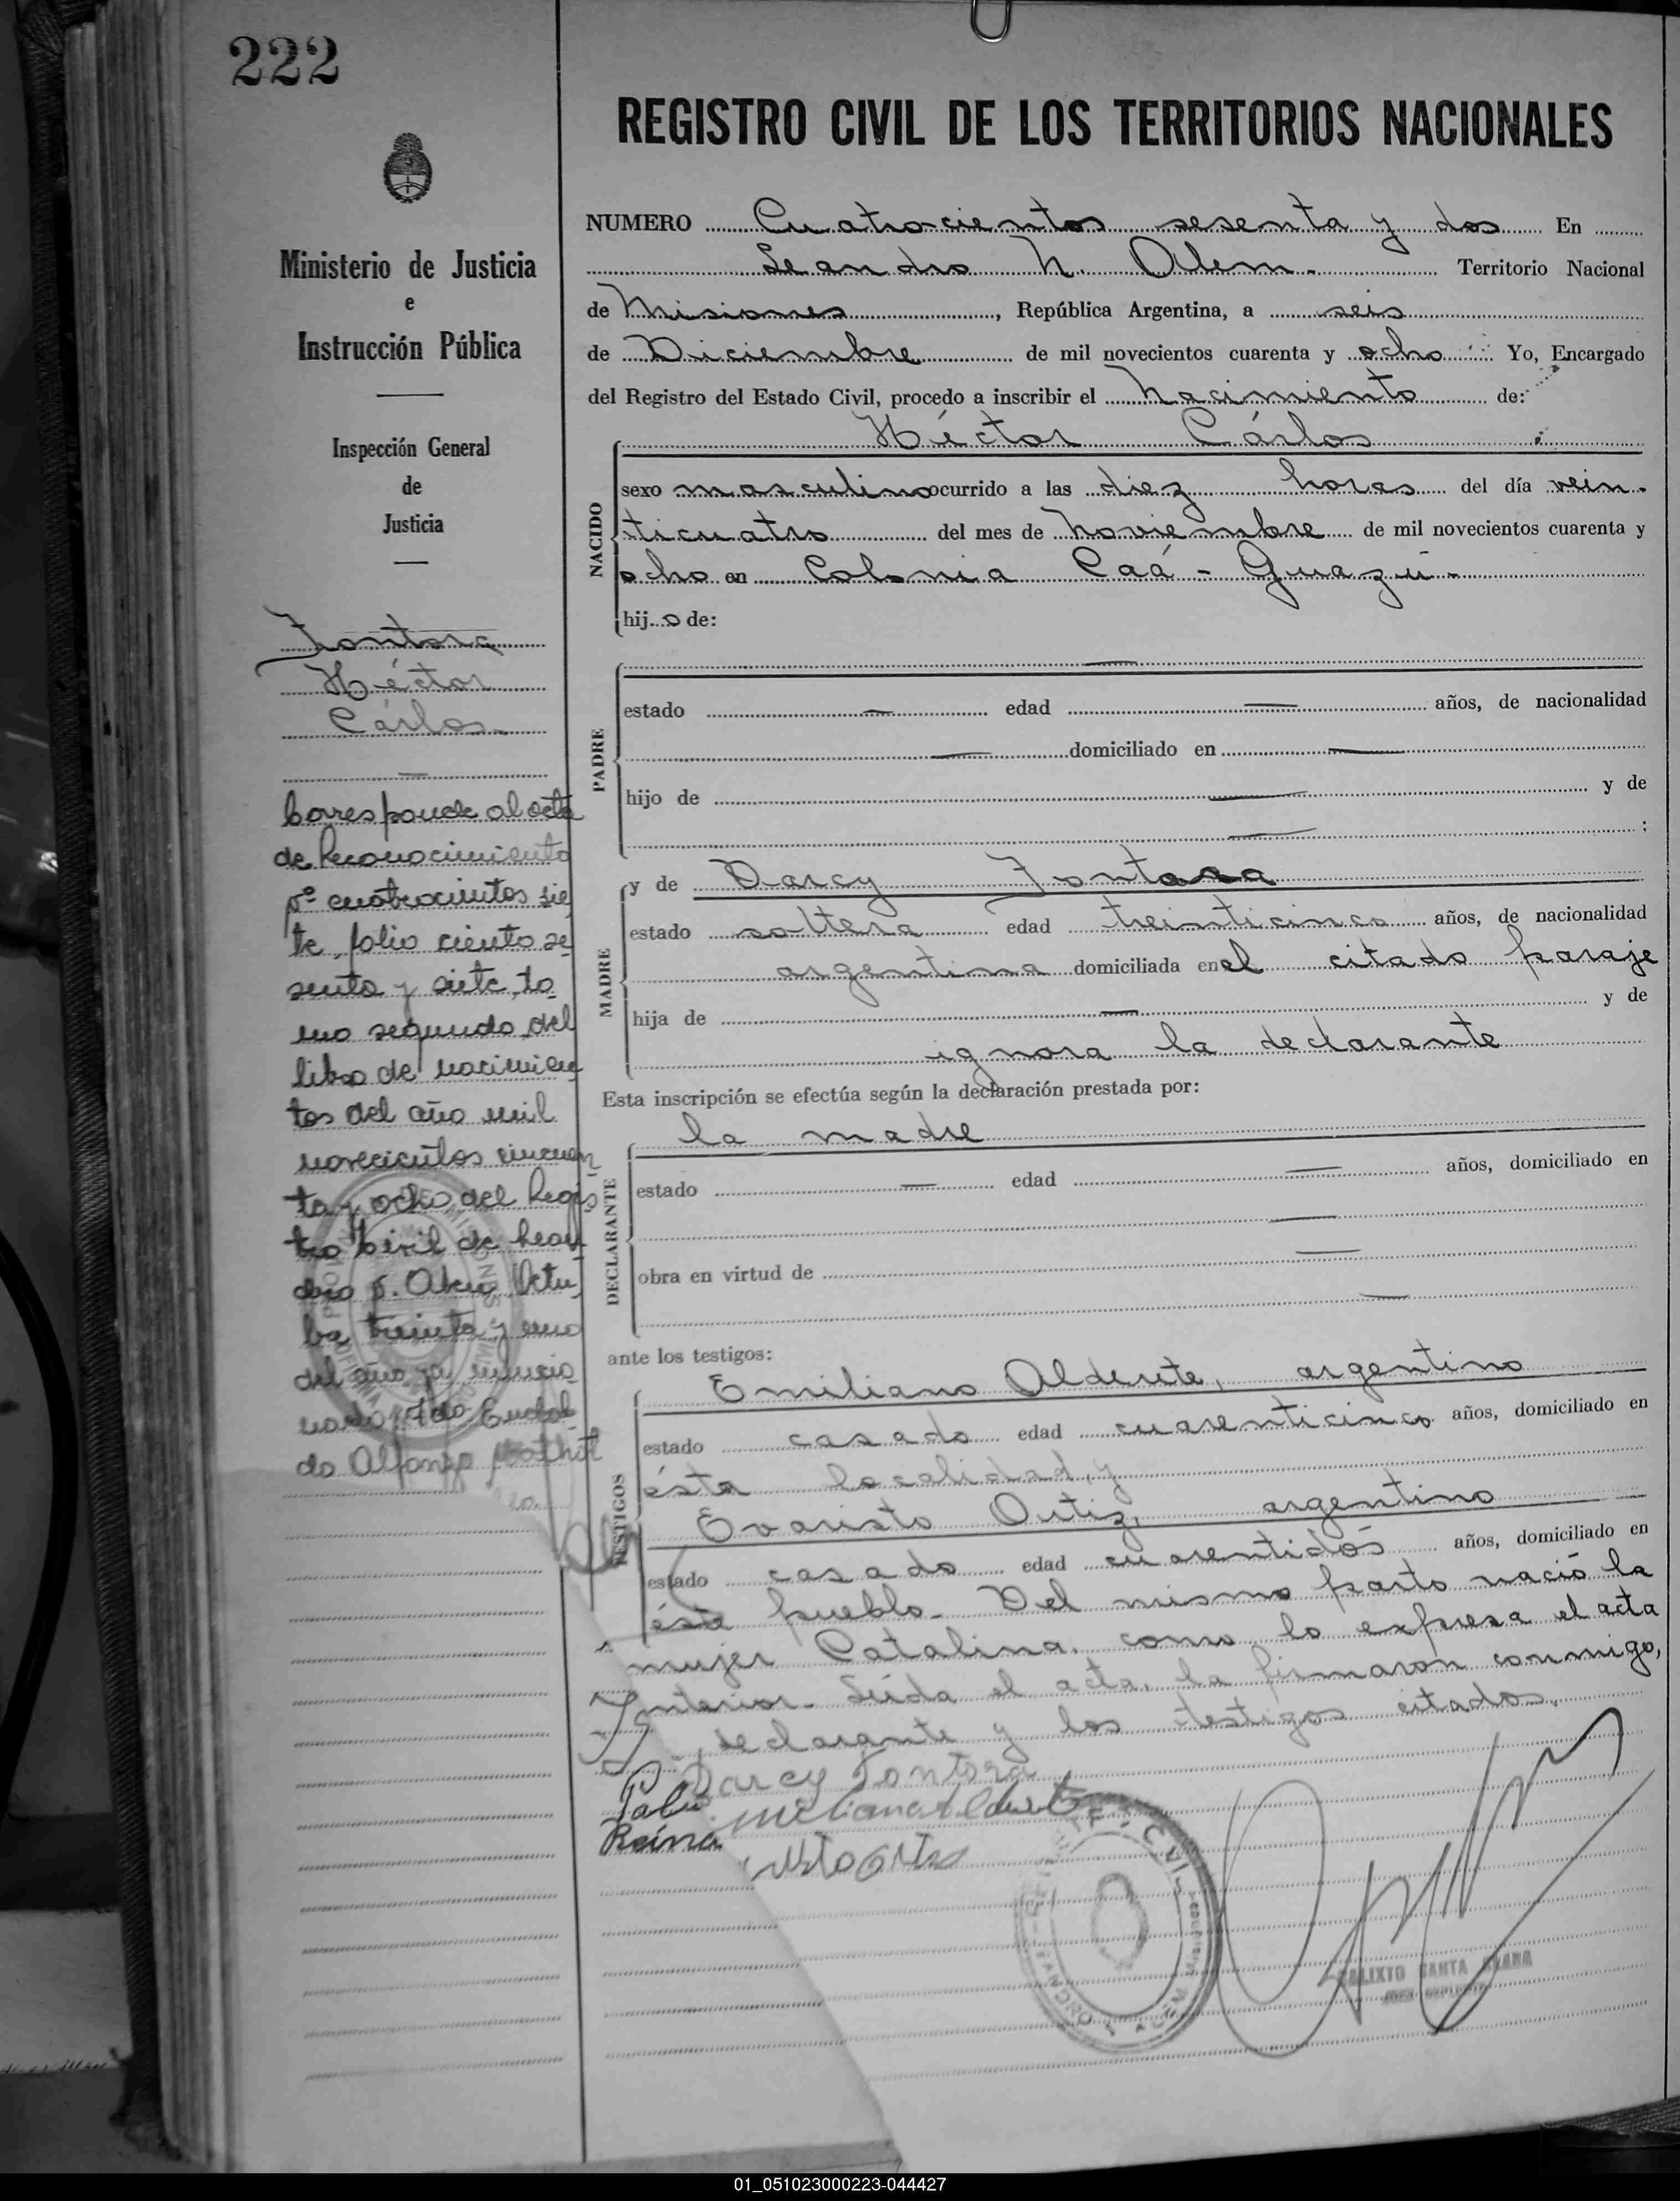 222
REGISTRO CIVIL DE LOS TERRITORIOS NACIONALES
Ministerio de Justicia
e
Instrucción Pública
Inspección General
de
Justicia
NUMERO Cuatrocientos sesenta y dos En
Leandro N. Alem. Territorio Nacional
de Misiones, República Argentina, a seis
de Diciembre de mil novecientos cuarenta y ocho Yo, Encargado
del Registro del Estado Civil, procedo a inscribir el Nacimiento de:
Héctor Cárlos
NACIDO
sexo masculino ocurrido a las diez horas del día vein-
ticuatro del mes de Noviembre de mil novecientos cuarenta y
ocho en Colonia Caá-Guazú.
hijo de:
Fontora
Héctor
Cárlos.
Corresponde al acta
de Reconocimiento
nº cuatrocientos sie
te, folio ciento se
senta y siete, to
mo segundo, del
libro de nacimien
tos del año mil
novecientos cincuen
ta y ocho del Regis
tro Civil de Lean
dro N. Alem Octu
bre treinta y uno
del año
do Alfonso
PADRE
estado edad años, de nacionalidad
domiciliado en
hijo de y de
:
MADRE
y de Darcy Fontora
estado soltera edad treinticinco años, de nacionalidad
argentina domiciliada en el citado paraje
hija de y de
ignora la declarante
Esta inscripción se efectúa según la declaración prestada por:
DECLARANTE
la madre
estado edad años, domiciliado en
obra en virtud de
ante los testigos:
TESTIGOS
Emiliano Alderete, argentino
estado casado edad cuarenticinco años, domiciliado en
ésta localidad, y
Evaristo Ortiz, argentino
estado casado edad cuarentidós años, domiciliado en
éste pueblo. Del mismo parto nació la
mujer Catalina. como lo expresa el acta
anterior. Leída el acta, la firmaron conmigo,
declarante y los testigos citados.
Darcy Fontora
Reina
CIVIL
LEANDRO N. ALEM
CALIXTO SANTA MARIA
01_051023000223-044427